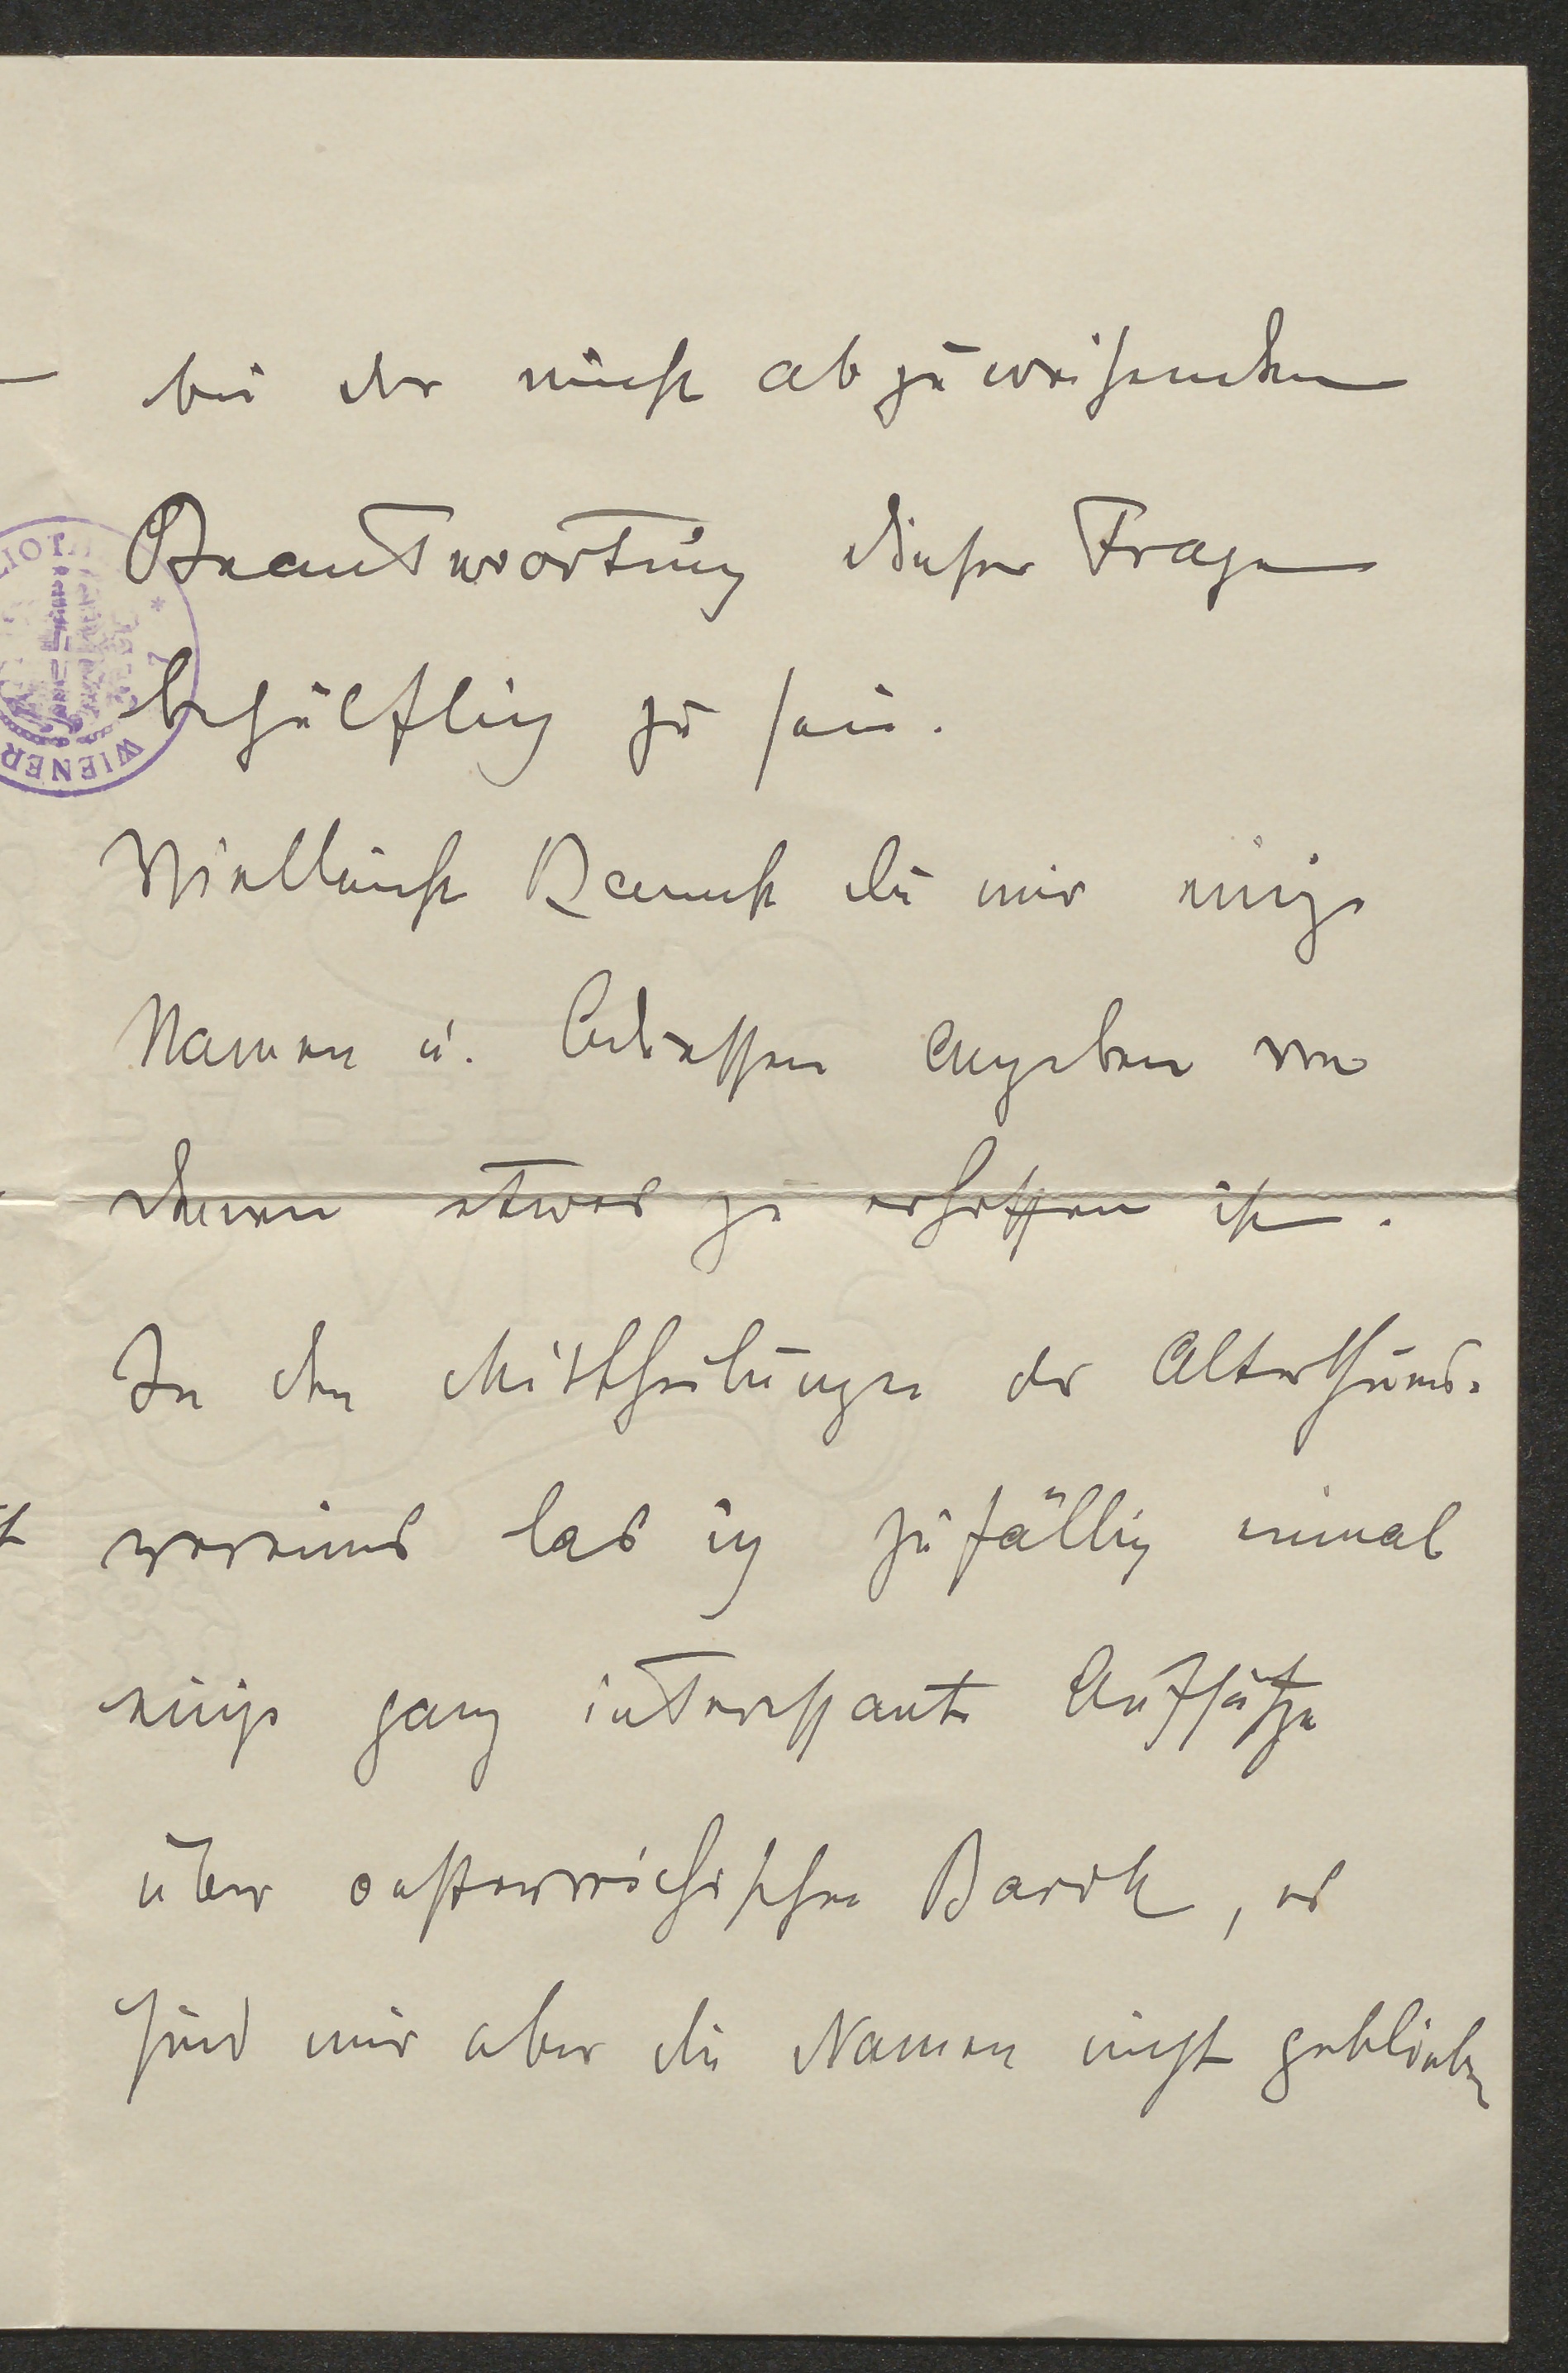 bei der nicht abzuweisenden
Beantwortung dieser Fragen
behülflich zu sein.
Vielleicht kannst du mir einige
Namen u. Adressen angeben von
denen etwas zu erhoffen ist.
In den Mittheilungen des Alterthums-
vereines las ich zufällig einmal
einige ganz interessante Aufsätze
über oesterreichisches Barok, es
sind mir aber die Namen nicht geblieben
WIENER